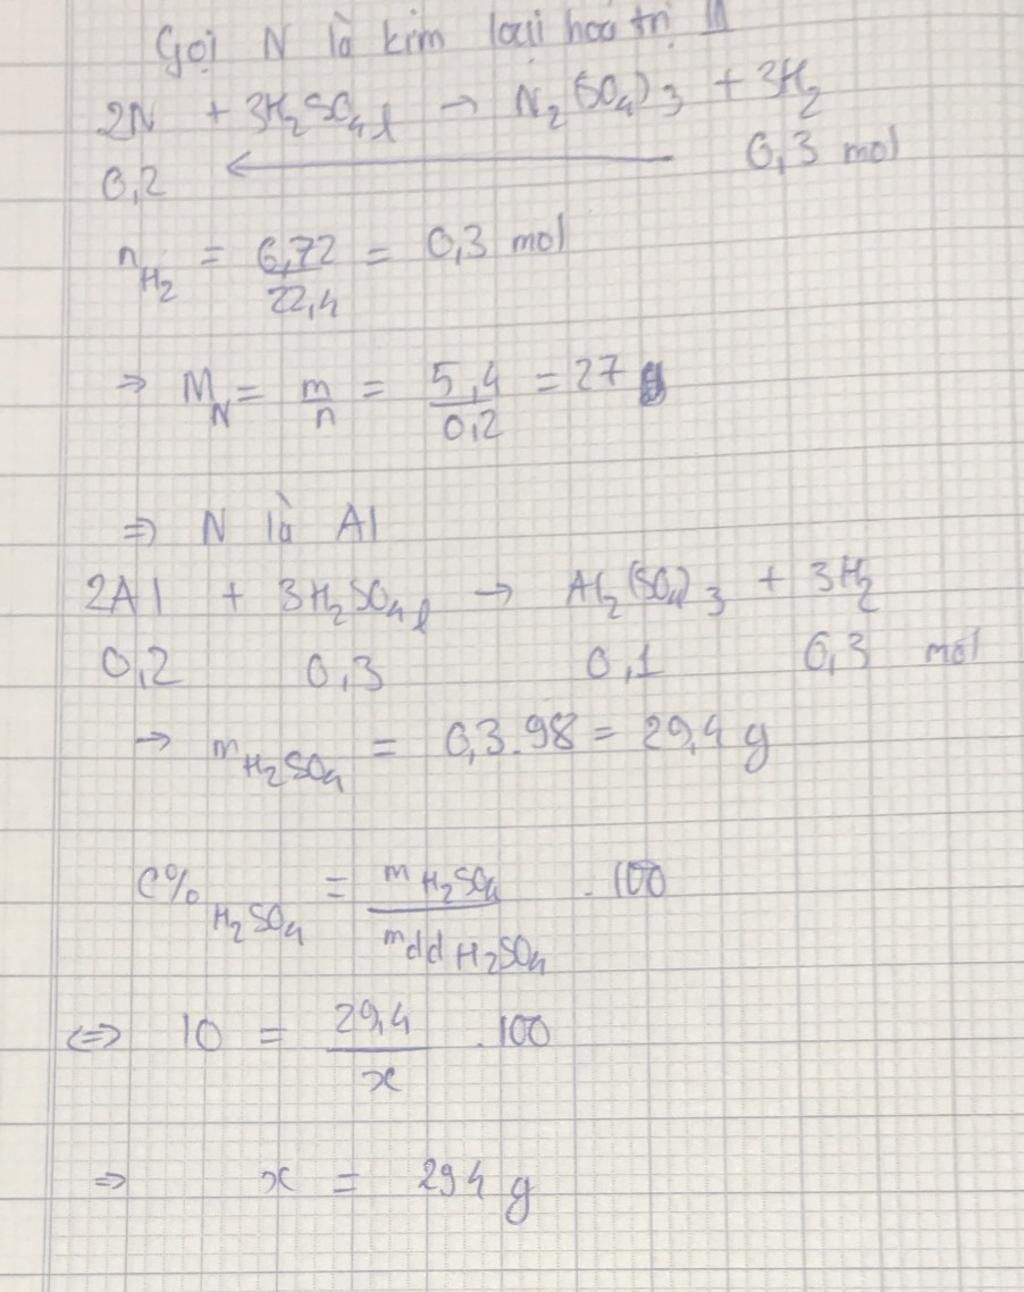 Gọi N là kim loại hoá trị III
2N + 3H₂SO₄ l → N₂(SO₄)₃ + 3H₂
0,2 ← 0,3 mol
n H₂ = 6,72 / 22,4 = 0,3 mol
⇒ M N = m / n = 5,4 / 0,2 = 27
⇒ N là Al
2Al + 3H₂SO₄ l → Al₂(SO₄)₃ + 3H₂
0,2 0,3 0,1 0,3 mol
→ m H₂SO₄ = 0,3.98 = 29,4 g
C% H₂SO₄ = m H₂SO₄ / mdd H₂SO₄ . 100
⇔ 10 = 29,4 / x . 100
⇒ x = 294 g